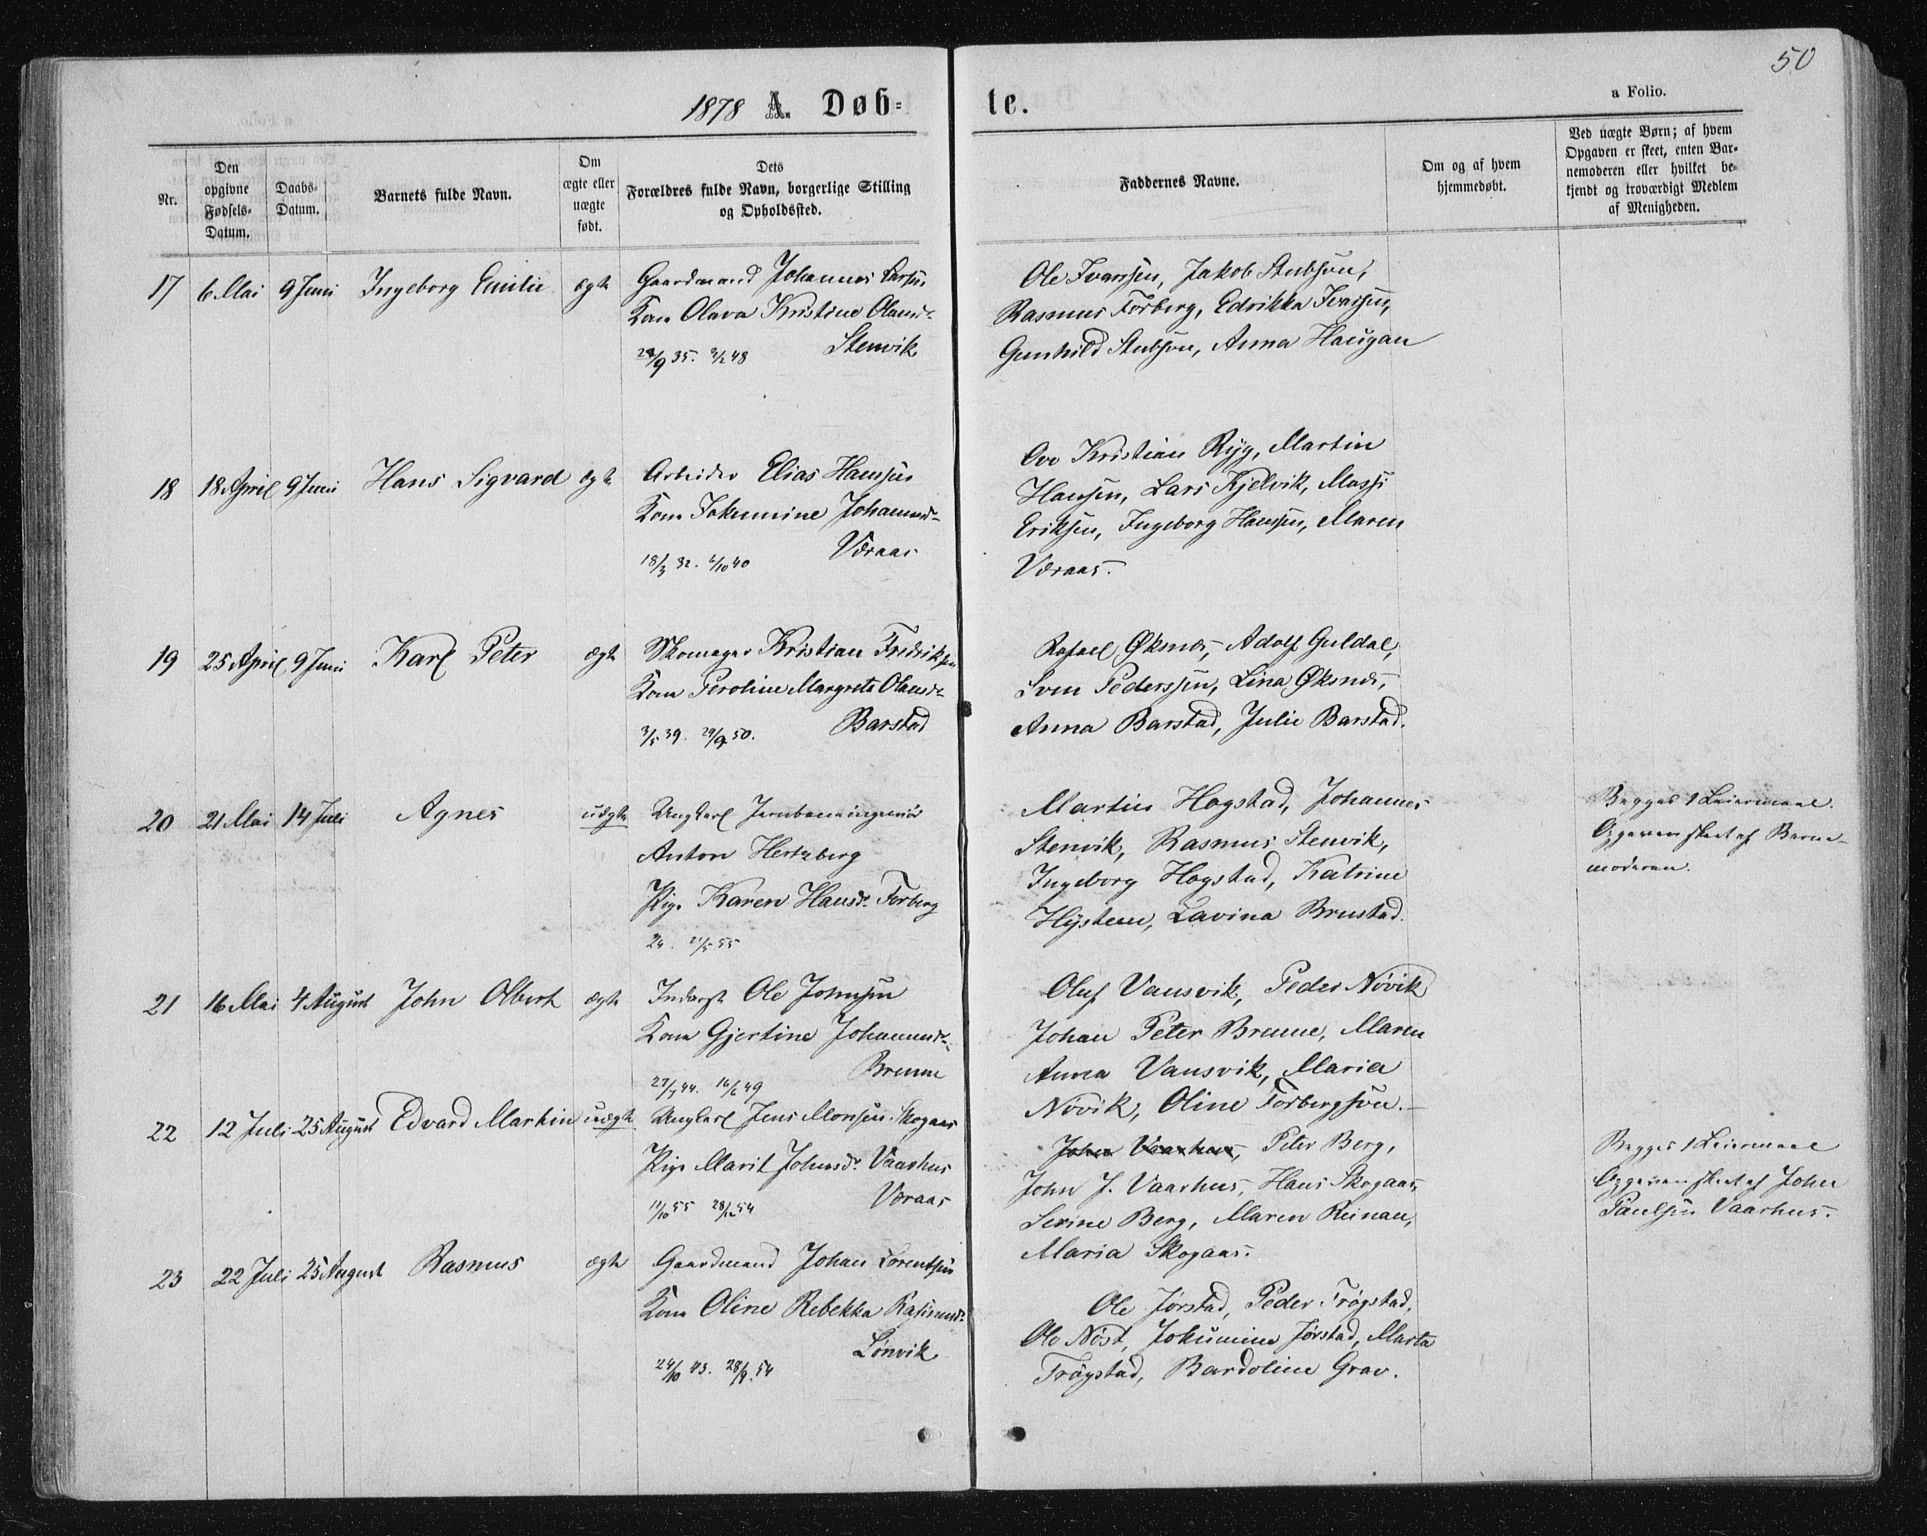 50
1878 A. Døbte.
a Folio.
Nr.
Den opgivne Fødsels-Datum.
Daabs-Datum.
Barnets fulde Navn.
Om ægte eller uægte født.
Dets Forældres fulde Navn, borgerlige Stilling og Opholdssted.
Faddernes Navne.
Om og af hvem hjemmedøbt.
Ved uægte Børn; af hvem Opgaven er skeet, enten Barnemoderen eller hvilket bekjendt og troværdigt Medlem af Menigheden.
17 6 Mai 9 Juni Ingeborg Emilie ægte Gaardmand Johannes Larsen
Kone Olava Kristine Olausd.
Stenvik
9 35. 2/2 48
Ole Ivarssen, Jakob Stubson,
Rasmus Forberg, Edrikka Ivarssen,
Gunhild Stubson, Anna Haugan
18 18 April 9 Juni Hans Sigvard ægte Arbeider Elias Hanssen
Kone Jokumine Johannesd.
Væraas
18/3 32. /10 40
Ove Kristian Ryg, Martin
Hanssen, Lars Kjelvik, Massi
Eriksen, Ingeborg Hanssen, Maren
Væraas.
19 25 April 9 Juni Karl Peter ægte Skomager Kristian Fredriksen
Kone Peroline Margrete Olausd.
Barstad
3/5 39. 29/9 50.
Rafael Øksnæs, Adolf Guldal,
Sven Pederssen, Lina Øksnæs,
Anna Barstad, Julie Barstad.
20 21 Mai 14 Juli Agnes uægte Ungkarl Jernbaneingeniør
Anton Hertzberg
Pige Karen Hansd. Forberg
26. 21/5 55
Martin Hogstad, Johannes
Stenvik, Rasmus Stenvik,
Ingeborg Hogstad, Katrine
Hysteen, Lavina Brustad.
Begges 1 Leiermaal.
Opgaven skeet af Barne-
moderen.
21 16 Mai 4 August John Olbert ægte Inderst Ole Johnsen
Kone Gjertine Johannesd.
Brenne
27/7 44. 16/6 49
Oluf Vansvik, Peder Növik
Johan Peter Brenne, Maren
Anna Vansvik, Maria
Növik, Oline Forbergson.
22 12 Juli 25 August Edvard Martin uægte Ungkarl Jens Monsen Skogaas
Pige Marit Johnsd. Vaarhus
Væraas
17/10 55 28/12 54
John Vaarhus, Peter Berg,
John J. Vaarhus, Hans Skogaas,
Serine Berg, Maren Reinan,
Maria Skogaas.
Begges 1 Leiermaal
Opgaven skeet af John
Paulsen Vaarhus.
23 22 Juli 25 August Rasmus ægte Gaardmand Johan Lorentsen
Kone Oline Rebekka Rasmusd.
Lönvik
24/10 43. 28/9. 54
Ole Jørstad, Peder Trøgstad,
Ole Nöst, Jokumine Jørstad, Marta
Trøgstad, Bardoline Grav.